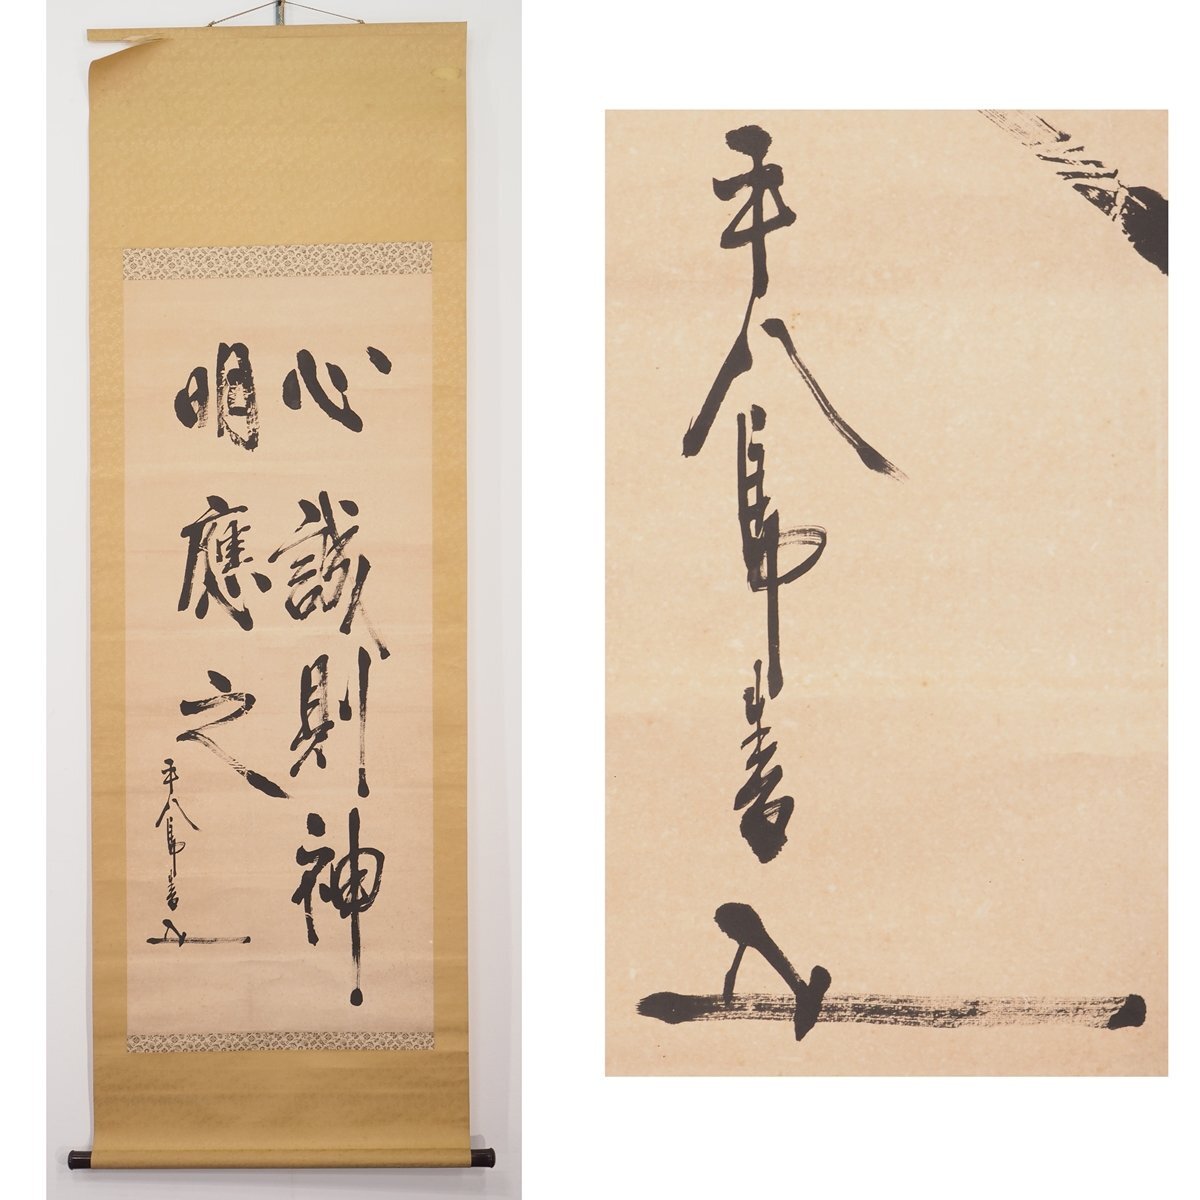 心誠則神
明應之
平八郎書
平八郎書